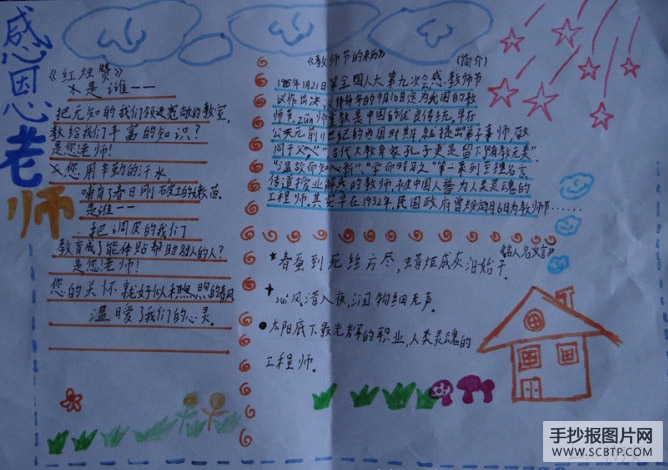 感恩老师
《红烛赞》
是谁——
把无知的我们领进宽敞的教室,
教给我们丰富的知识?
是您老师!
您用辛勤的汗水,
哺育了春日刚破土的嫩苗.
是谁——
把调皮的我们
教育成了能体贴帮助别人的人?
是您老师!
您的关怀就好似和煦的春风
温暖了我们的心灵.
《教师节的来历》
(简介)
1985年1月21日第全国人大第九次会
教师节
议作出决议,
每年的9月10日
为我国的教
师节.
重教是中国的优良传统,早在
公元前11世纪的西周时期,就提出
弟子事师,敬
同于父
古代大教育家孔子更是留下"有教无类"
"温故而知新","学而时习之"等一系列至理名言.
传道授业解惑的教师,被中国人誉为人类灵魂的
工程师,其实早在1932年,民国政府曾规定6月6日为教师节......
《名人名言》
春蚕到死丝方尽,蜡炬成灰泪始干.
sui风潜入夜,润物细无声.
太阳底下最光辉的职业,人类灵魂的
工程师.
手抄报图片网
WWW.SCBTP.COM